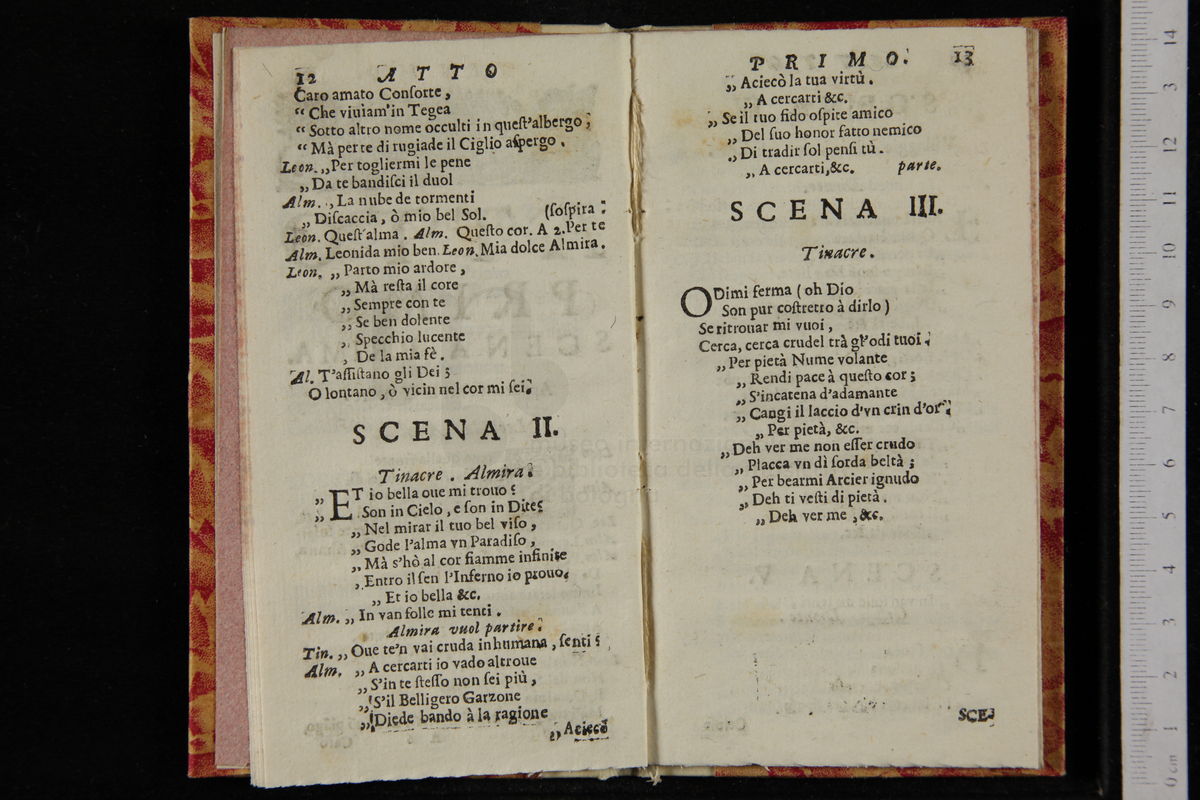 12 ATTO
Caro amato Conſorte,
“ Che viuiam'in Tegea
“ Sotto altro nome occulti in queſt'albergo;
“ Mà per te di rugiade il Ciglio aſpergo.
Leon. „Per togliermi le pene
„Da te bandiſci il duol
Alm. „La nube de tormenti
„Diſcaccia, ò mio bel Sol. (ſoſpira:
Leon. Queſt'alma. Alm. Queſto cor. A 2. Per te
Alm. Leonida mio ben. Leon. Mia dolce Almira.
Leon. „Parto mio ardore,
„Mà reſta il core
„Sempre con te
„Se ben dolente
„Specchio lucente
„De la mia fè.
Al. T'aſſiſtano gli Dei;
O lontano, ò vicin nel cor mi ſei.
SCENA II.
Tinacre. Almira.
„ET io bella oue mi trouo?
„Son in Cielo, e ſon in Dite?
„Nel mirar il tuo bel viſo,
„Gode l'alma vn Paradiſo,
„Mà s'hò al cor fiamme infinite
„Entro il ſen l'Inferno io prouo.
„Et io bella &c.
Alm. „In van folle mi tenti.
Almira vuol partire.
Tin. „Oue te'n vai cruda inhumana, ſenti?
Alm. „A cercarti io vado altroue
„S'in te ſteſſo non ſei più,
„S'il Belligero Garzone
„Diede bando à la ragione
„Aciecò
PRIMO. 13
„Aciecò la tua virtù.
„A cercarti &c.
„Se il tuo fido oſpite amico
„Del ſuo honor fatto nemico
„Di tradir ſol penſi tù.
„A cercarti, &c. parte.
SCENA III.
Tinacre.
ODimi ferma (oh Dio
Son pur coſtretto à dirlo)
Se ritrouar mi vuoi,
Cerca, cerca crudel trà gl'odi tuoi.
„Per pietà Nume volante
„Rendi pace à queſto cor;
„S'incatena d'adamante
„Cangi il laccio d'vn crin d'or.
„Per pietà, &c.
„Deh ver me non eſſer crudo
„Placca vn dì ſorda beltà;
„Per bearmi Arcier ignudo
„Deh ti veſti di pietà.
„Deh ver me, &c.
SCE-